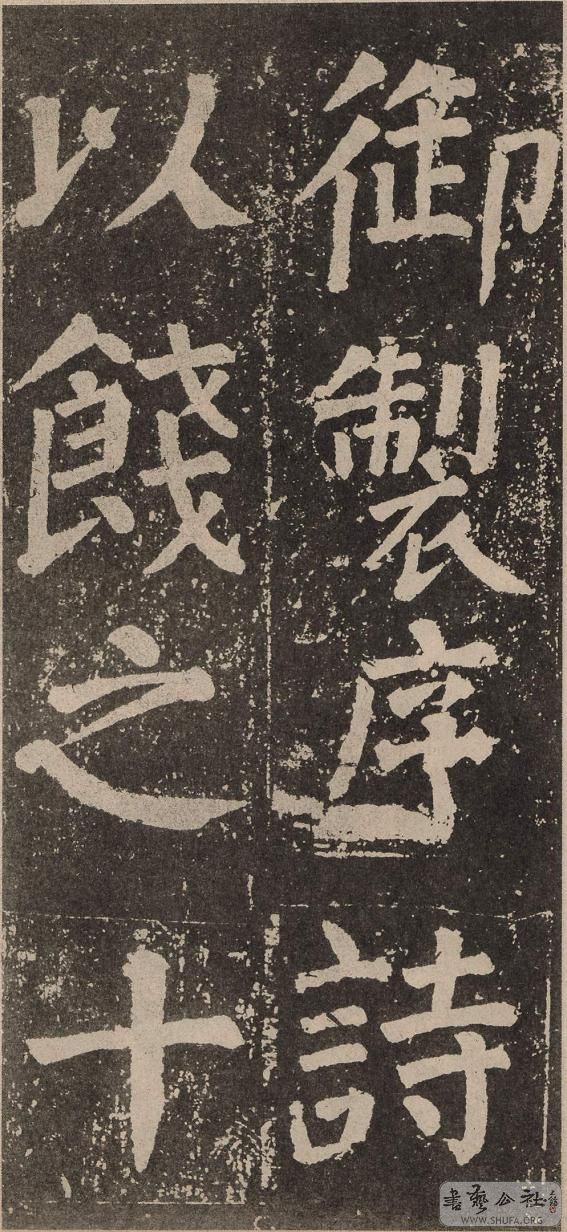 御製序詩
以餞之十
書藝公社
WWW.SHUFA.ORG